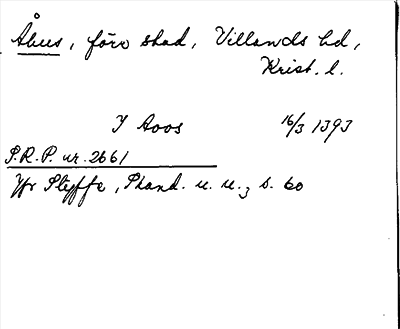 Åhus, förv stad, Villands hd,
Krist. l.
I Aoos 16/3 1393
S.R.P. nr. 2661
Jfr Styffe, Skand. u. u., s. 60